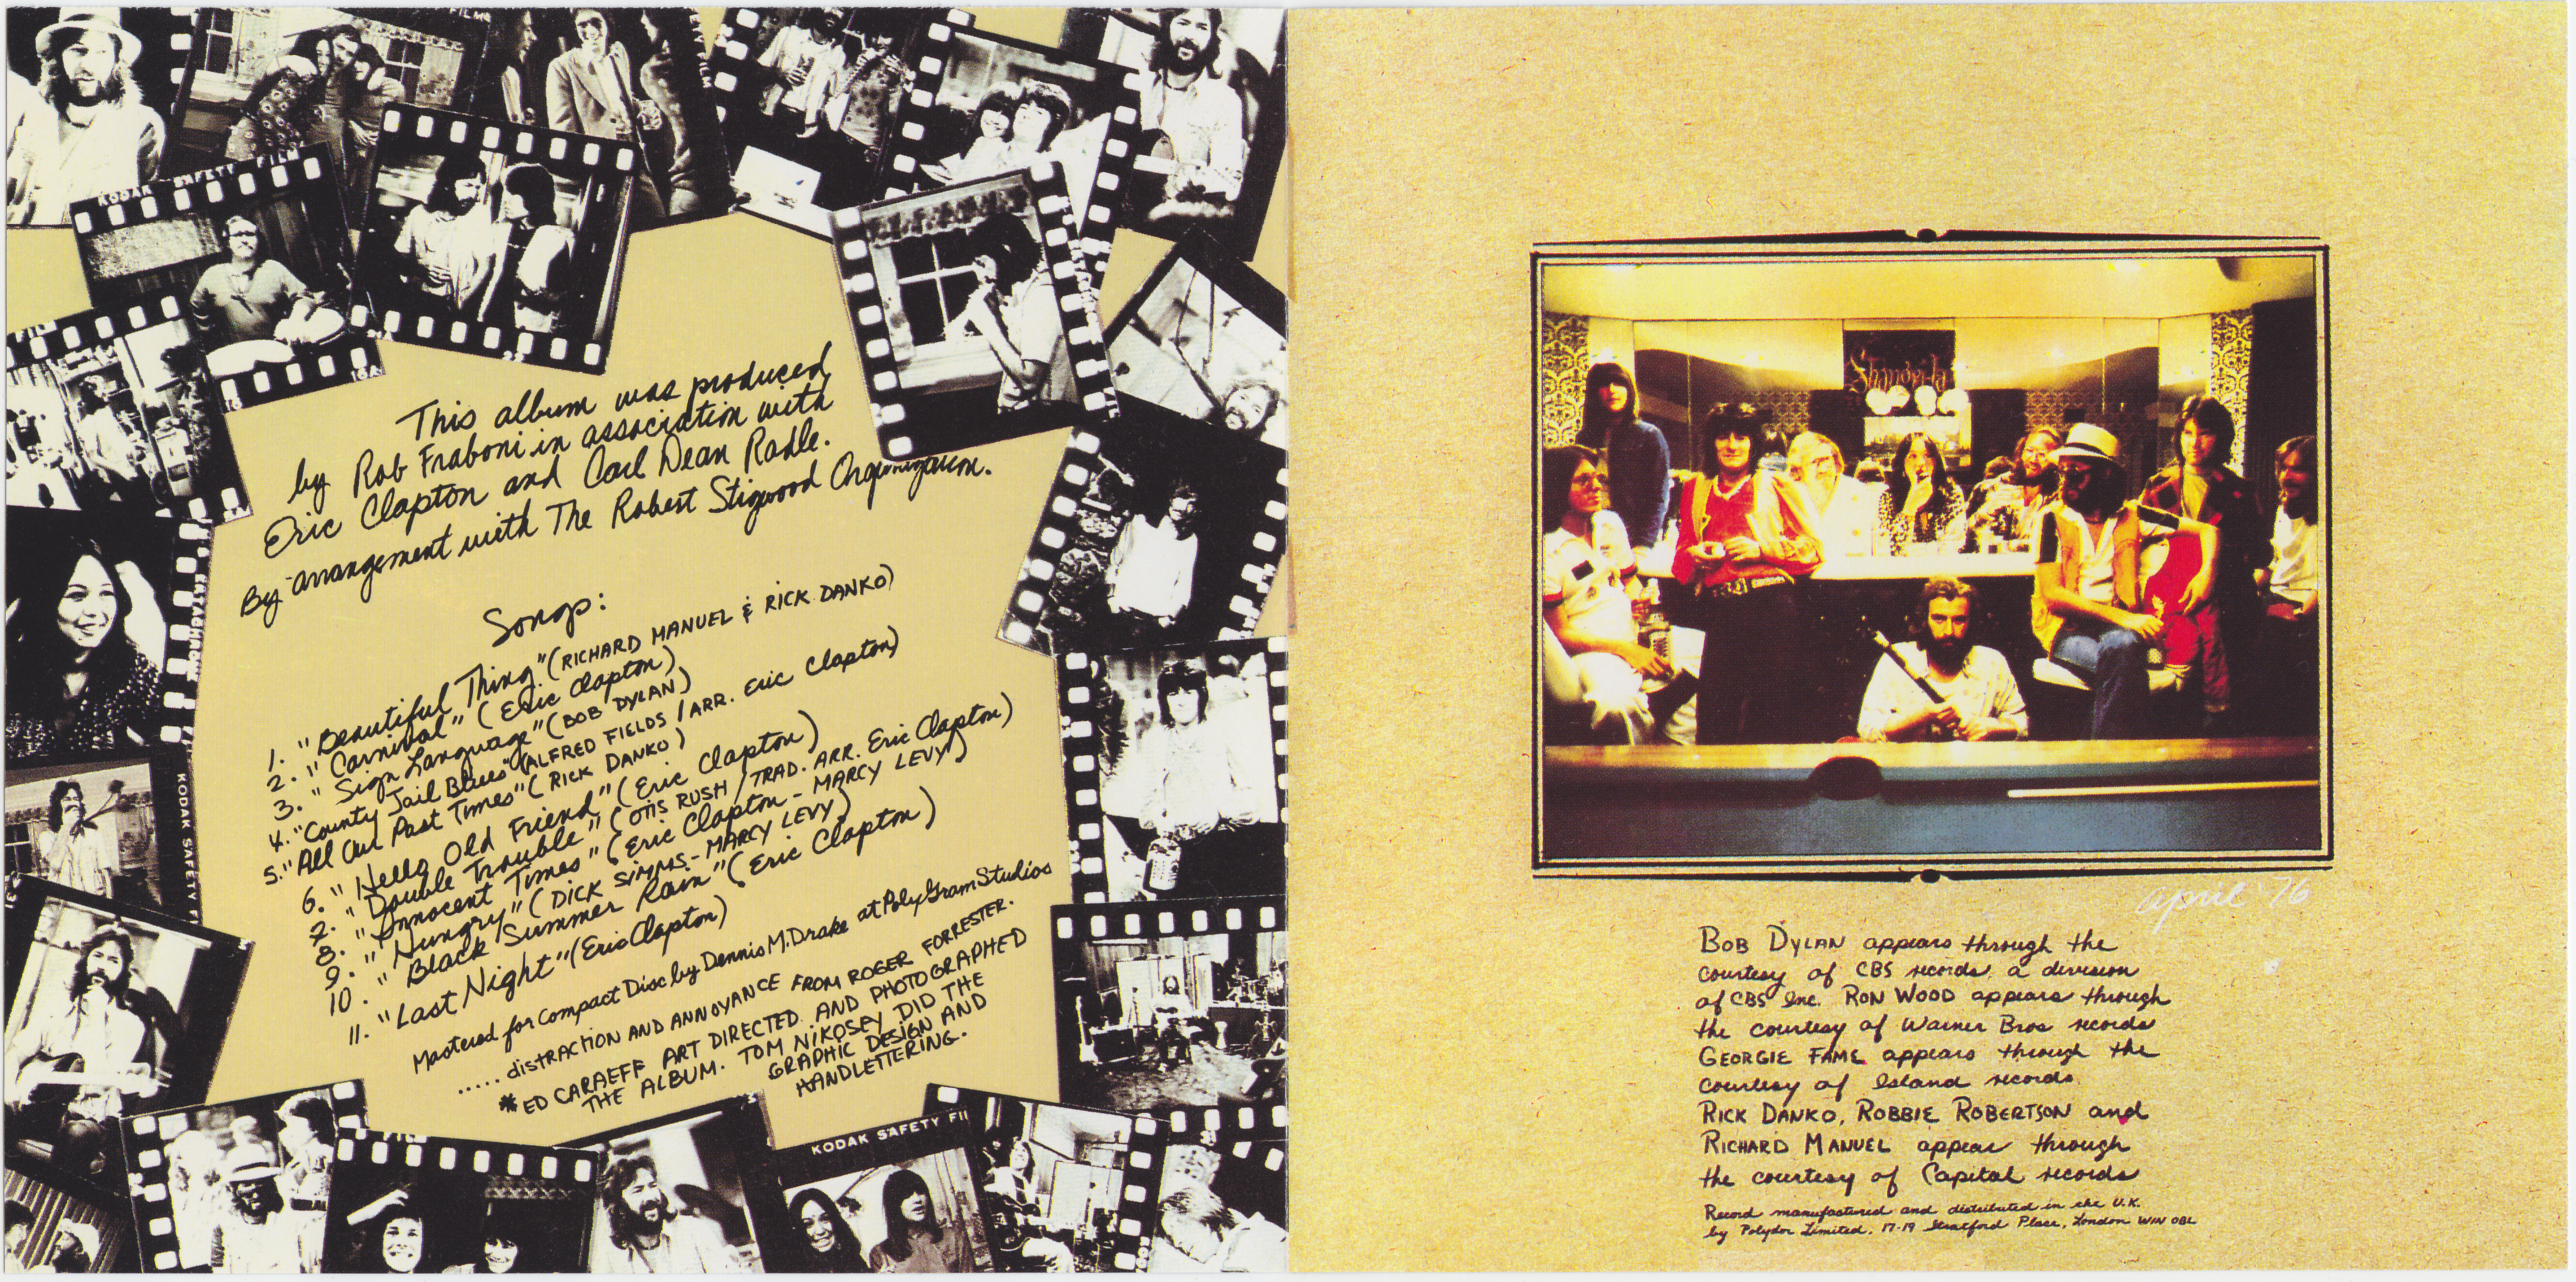 FILM
ETY FILM
KODAK SAFETY FILM
This album was produced
by Rob Fraboni in association with
Eric Clapton and Carl Dean Radle.
By arrangement with The Robert Stigwood Organization.
Songs:
1. "Beautiful Thing" (RICHARD MANUEL & RICK DANKO)
2. "Carnival" (Eric Clapton)
3. "Sign Language" (BOB DYLAN)
4. "County Jail Blues" (ALFRED FIELDS / ARR. Eric Clapton)
5. "All Our Past Times" (RICK DANKO)
6. "Hello Old Friend" (Eric Clapton)
7. "Double Trouble" (OTIS RUSH / TRAD. ARR. Eric Clapton)
8. "Innocent Times" (Eric Clapton - MARCY LEVY)
9. "Hungry" (DICK SIMMS - MARCY LEVY)
10. "Black Summer Rain" (Eric Clapton)
11. "Last Night" (Eric Clapton)
Mastered for Compact Disc by Dennis M. Drake at PolyGram Studios
..... distRACTION AND ANNOYANCE FROM ROGER FORRESTER.
*ED CARAEFF ART DIRECTED AND PHOTOGRAPHED
THE ALBUM. TOM NIKOSEY DID THE
GRAPHIC DESIGN AND
HANDLETTERING.
KODAK SAFETY F
KODAK SAFETY FI
Shangri-la
april '76
BOB DYLAN appears through the
courtesy of CBS records, a division
of CBS Inc. RON WOOD appears through
the courtesy of Warner Bros records
GEORGIE FAME appears through the
courtesy of Island records.
RICK DANKO, ROBBIE ROBERTSON and
RICHARD MANUEL appear through
the courtesy of Capital records
Record manufactured and distributed in the U.K.
by Polydor Limited, 17-19 Stratford Place, London W1N 0BL